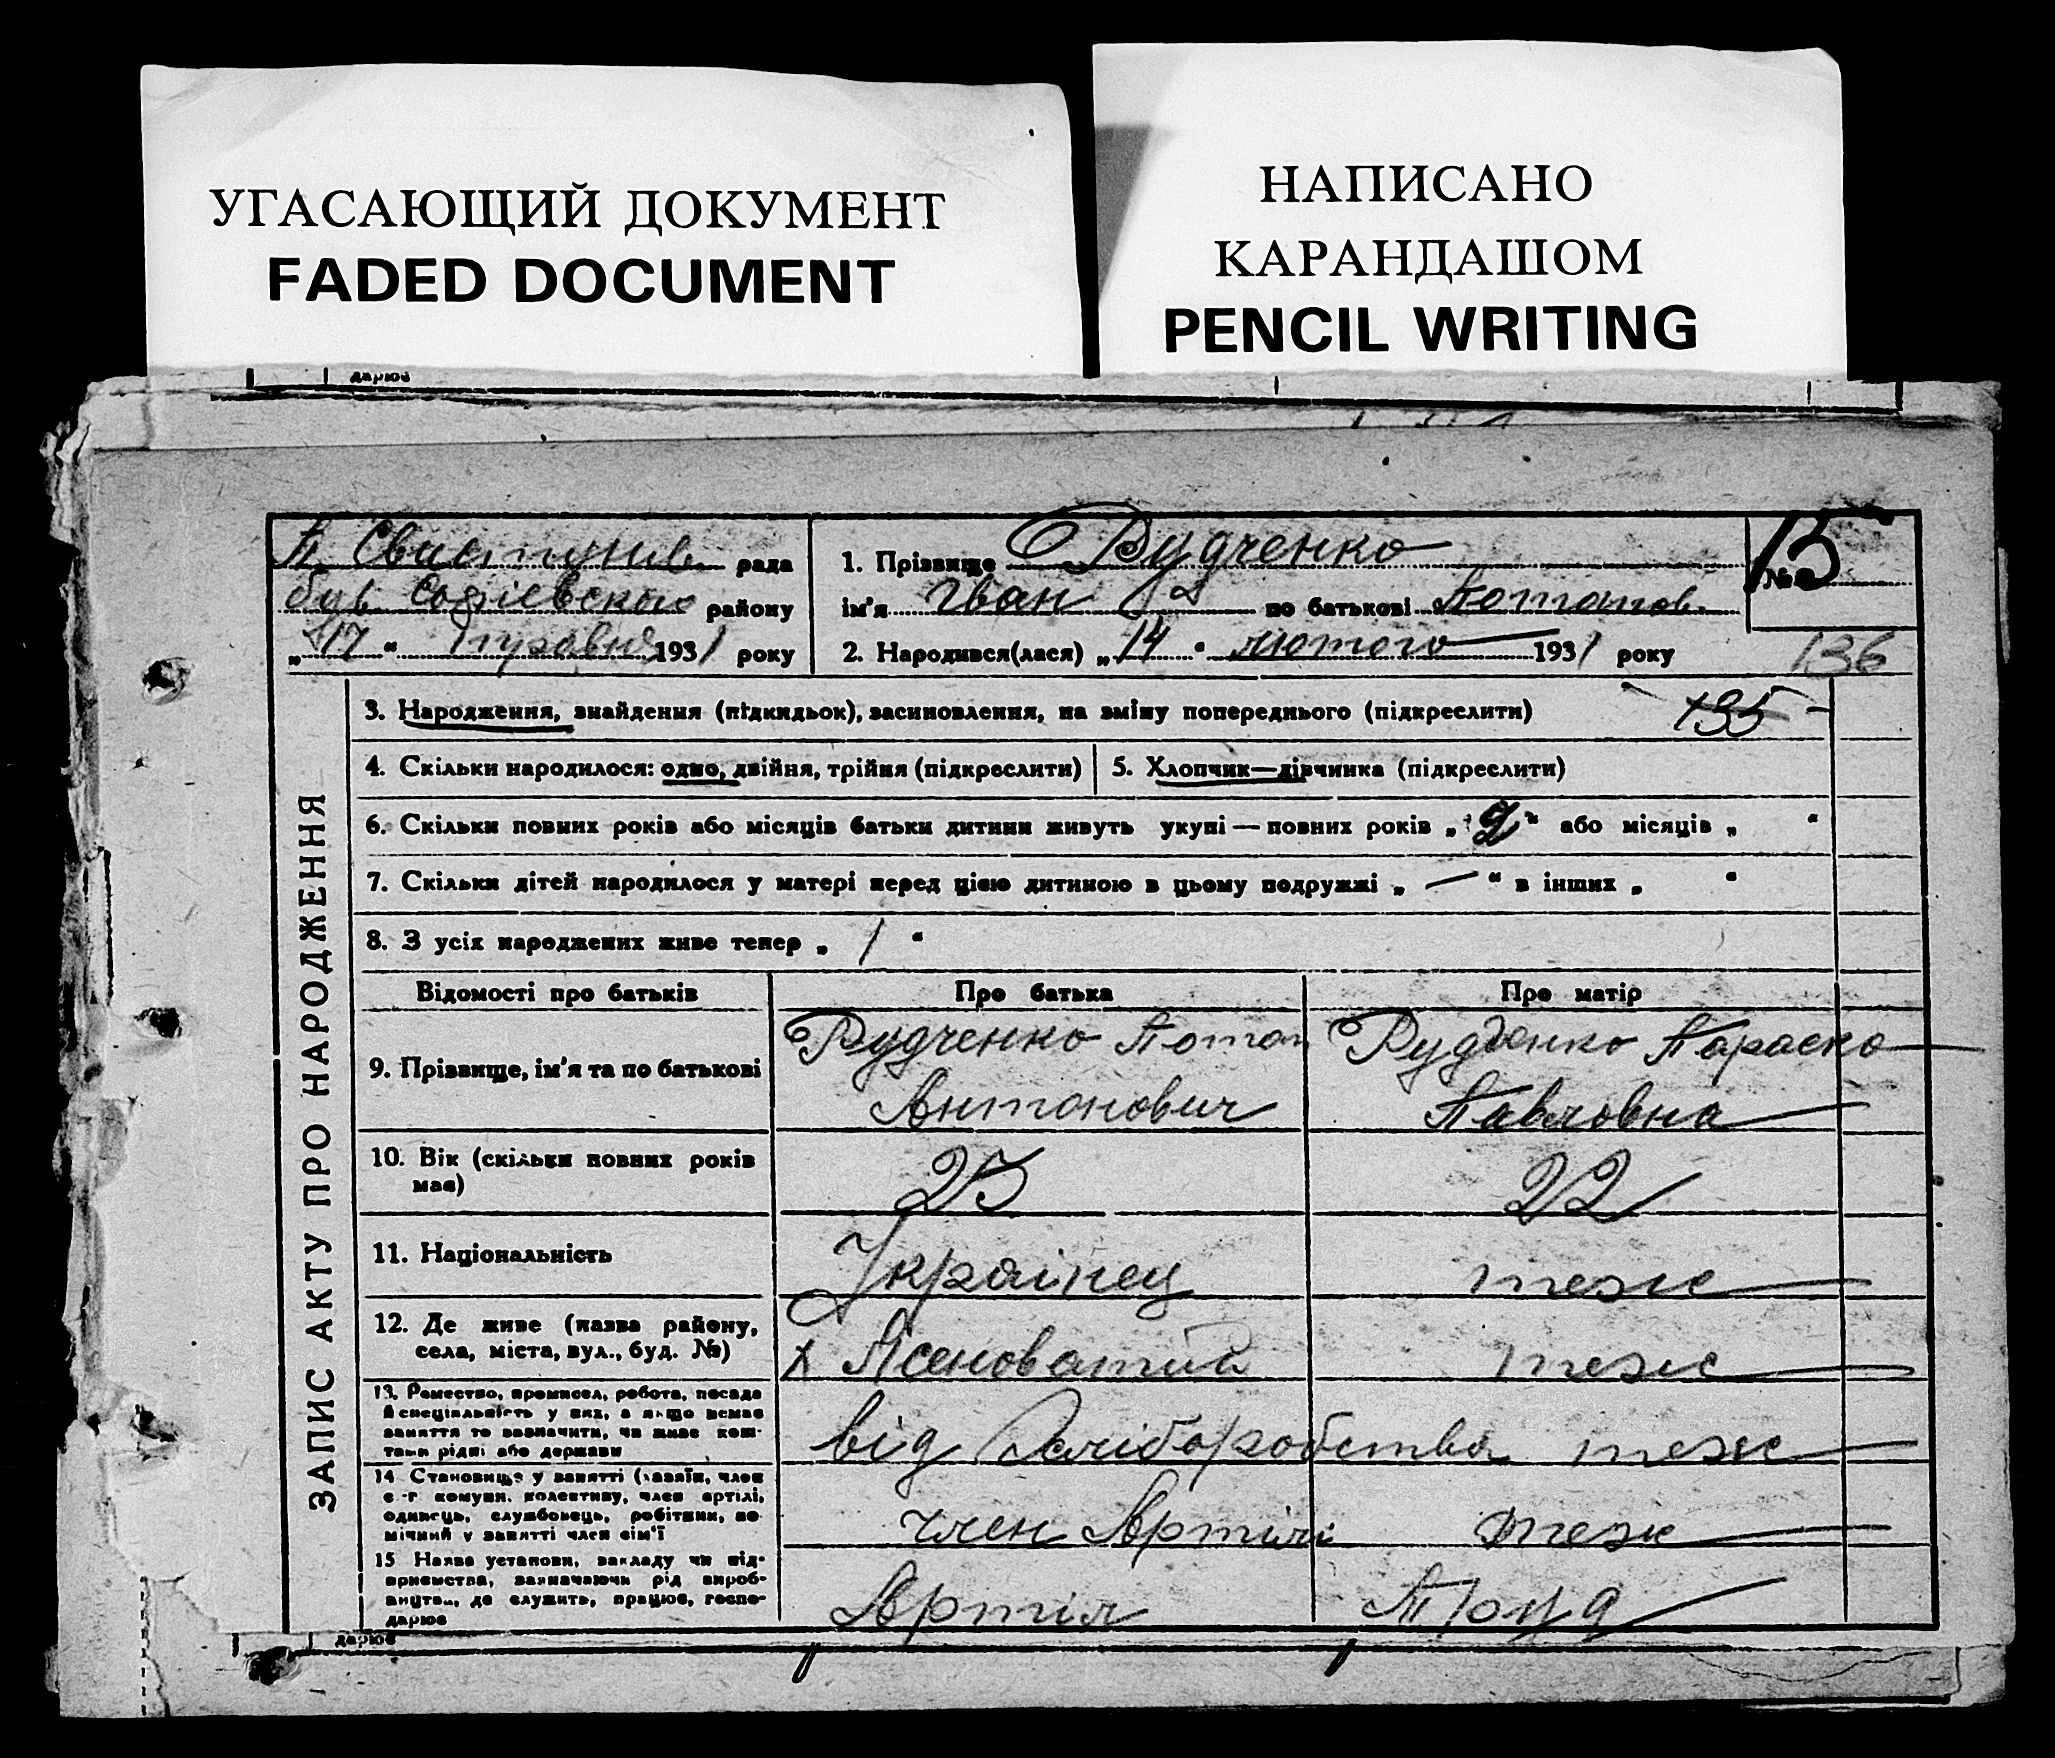 УГАСАЮЩИЙ ДОКУМЕНТ
FADED DOCUMENT
НАПИСАНО
КАРАНДАШОМ
PENCIL WRITING
дарює
рада
був Софіевсько району
„17“ травня 1931 року
1. Прізвище Рудченко
ім'я Іван по батькові Потапов.
2. Народився(лася) „14“ лютого 1931 року
№ 15
136
135
ЗАПИС АКТУ ПРО НАРОДЖЕННЯ
3. Народження, знайдення (підкидьок), засиновлення, на зміну попереднього (підкреслити)
4. Скільки народилося: одно, двійня, трійня (підкреслити)
5. Хлопчик—дівчинка (підкреслити)
6. Скільки повних років або місяців батьки дитини живуть укупі — повних років „2“ або місяців „ “
7. Скільки дітей народилося у матері перед цією дитиною в цьому подружжі „—“ в інших „ “
8. З усіх народжених живе тепер „1“
Відомості про батьків
Про батька
Про матір
9. Прізвище, ім'я та по батькові
Рудченко Потап
Антонович
Рудченко Параска
Павловна
10. Вік (скільки повних років
має)
25
22
11. Національність
Українец
теж
12. Де живе (назва району,
села, міста, вул., буд. №)
х Ясеноватий
теж
13. Ремество, промисел, робота, посада
й спеціяльність у них, а якщо немає
заняття то зазначити, чи живе кош-
тами рідні або держави
від Хліборобства
теж
14 Становище у занятті (хазяїн, член
с.-г. комуни, колективу, член артілі,
одинець, службовець, робітник, по-
мічний у занятті член сім'ї
член Артілі
теж
15 Назва установи, закладу чи під-
приємства, зазначаючи рід вироб-
ництва, де служить, працює, госпо-
дарює
Артіл
дарює